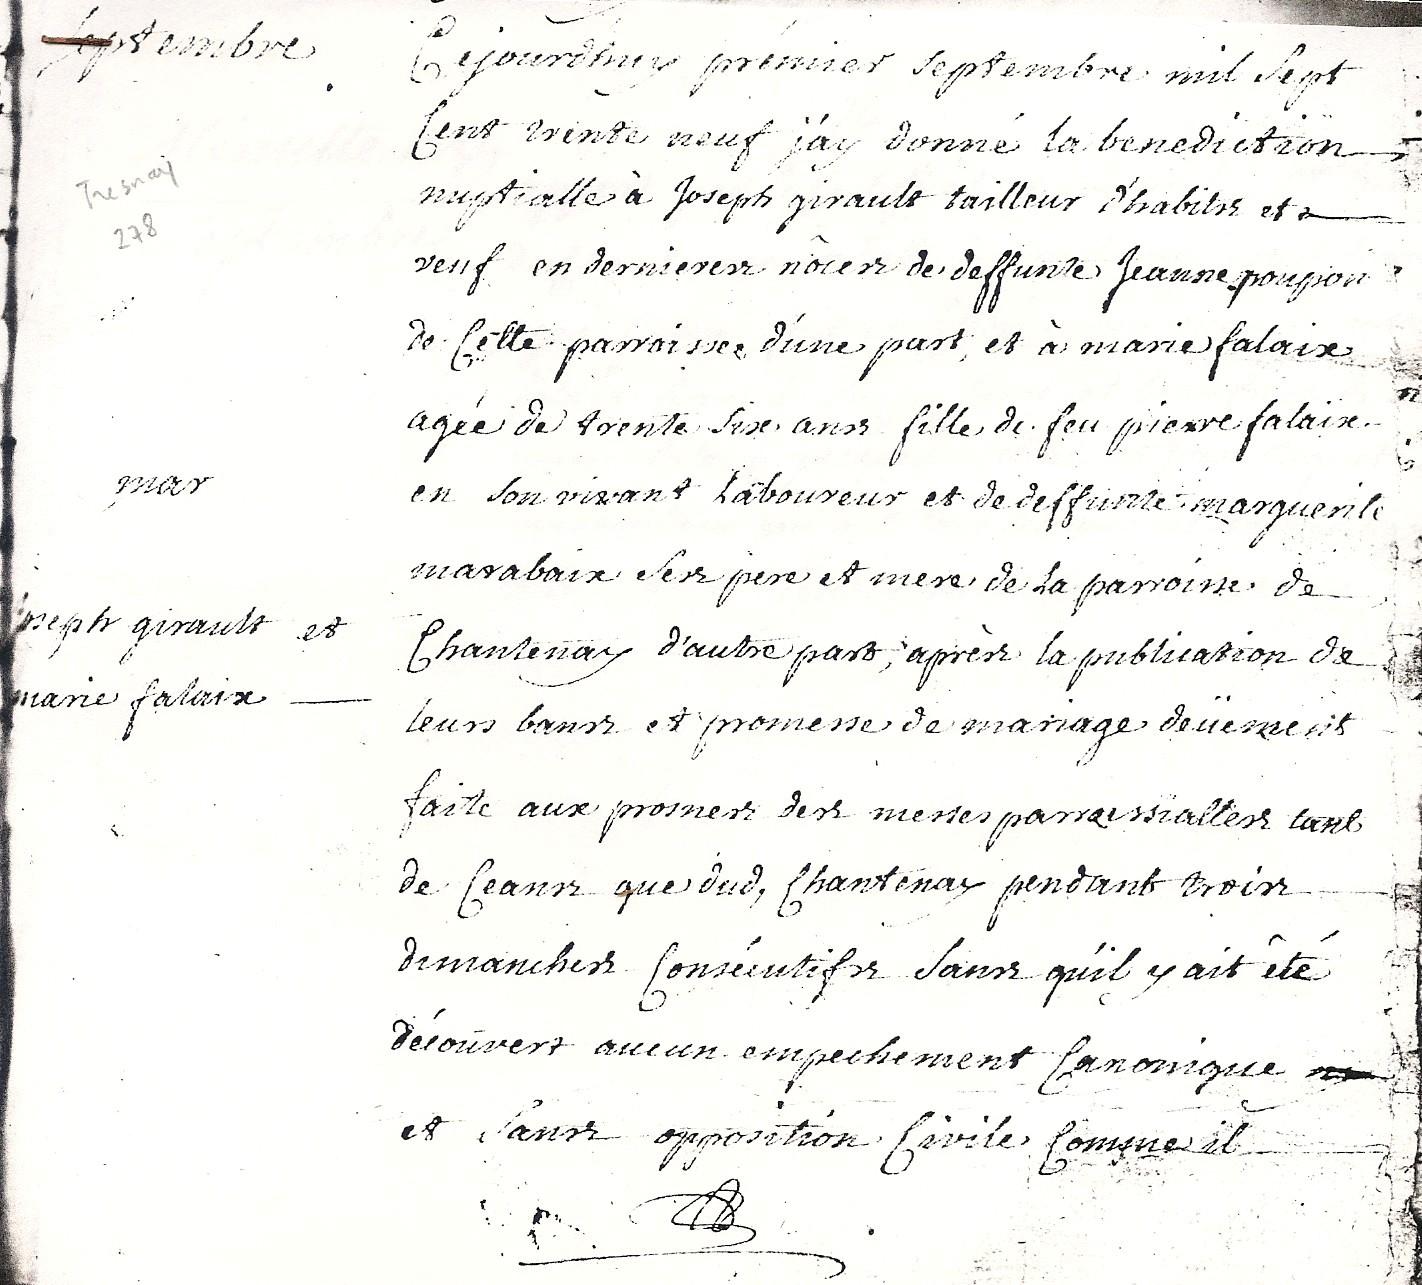 Septembre
Tresnay
278
mar
Joseph girault et
marie falaix
Cejourdhuy prémier septembre mil sept
Cent trente neuf j'ay donné la benediction
nuptialle à Joseph girault tailleur d'habits et
veuf en dernieres nôces de deffunte Jeanne poupon
de Cette parroisse d'une part, et à marie falaix
agée de trente six ans fille de feu pierre falaix
en son vivant Laboureur et de deffunte marguerite
marabaix ses pere et mere de La parroisse de
Chantenay d'autre part, après la publication de
leurs bans et promesse de mariage deüement
faite aux prosnes des messes parroissialles tant
de Ceans que dud, Chantenay pendant trois
dimanches Consécutifs sans qu'il y ait êté
décoūvert aucun empechement Canonique
et sans opposition Civile Comme il